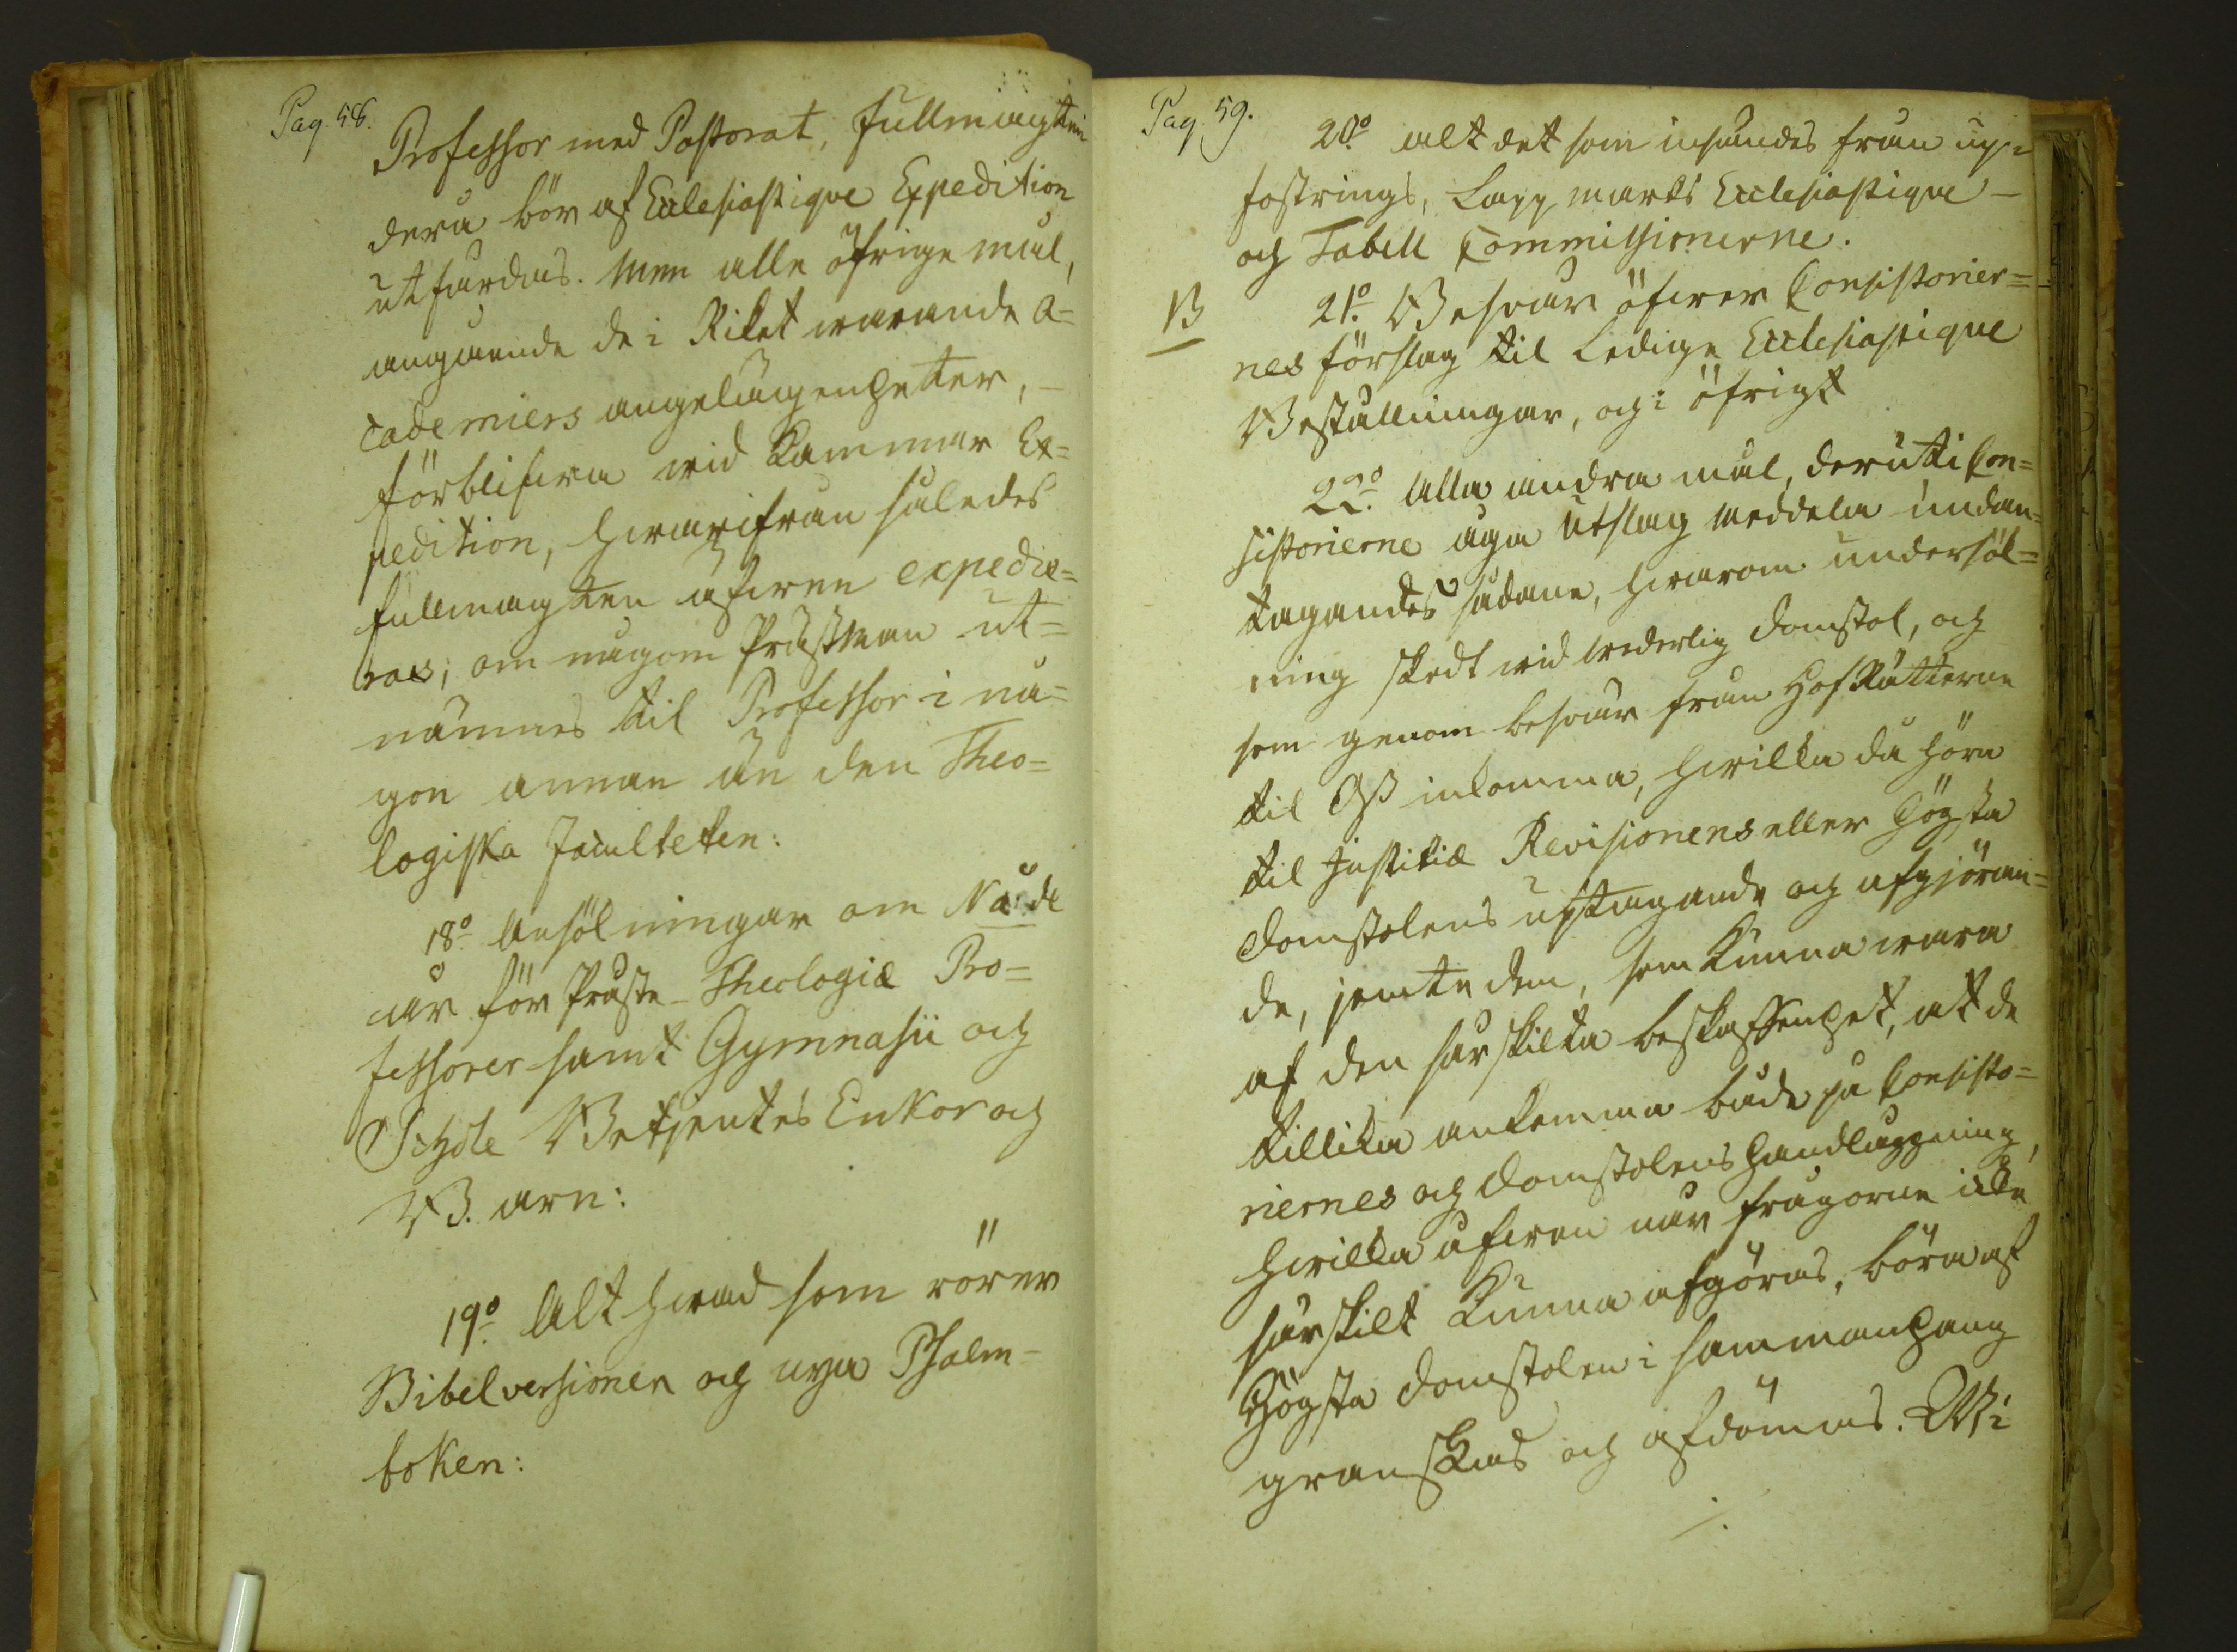 Pag. 58.
Professor med Pastorat, fullmagten
derå bör af Ecclesiastique Expedition
utfärdas. Men alle öfrige mål,
angående de i Riket warande A=
cademiers angelägenheter, –
förblifwa wid Kammar Ex=
pedition, hwarifrån således
fullmagten äfwen expedie=
ras; om någon Prästman ut=
nämnes til Professor i nå=
gon annan än den Theo=
logiska Faculteten:
18:o Ansökningar om Nåde
år för Präste- Theologiæ Pro=
fessorer samt Gymnasii och
Schole Betjentes Enkor och
B. arn:
19:o Alt hwad som rörer
Bibelversionen och nya Psalm-
boken:
Pag. 59.
20:o alt det som insändes från up=
fostrings, Lappmarks Ecclesiastique –
och Tabell Commissionerne.
B 21:o Beswär öfwer Consistorier=
nes förslag til Ledige Ecclesiastique
Beställningar, och i öfrigt
22:o Alla andra mål, deruti Con=
sistorierne äga Utslag meddela undan=
tagandes sådane, hwarom undersök=
ning skedt wid wederlig Domstol, och
som genom beswär från HofRätterne
til Oss inkomma, hwilka då höra
til Justitiæ Revisionens eller Högsta
Domstolens uptagande och afgjöran=
de, jemte dem, som kunna wara
af den särskilta beskaffenhet, at de
tillika ankomma både på Consisto=
riernes och Domstolens handläggning,
hwilka äfwen när frågorne icke
särskilt kunna afgöras, böra af
Högsta Domstolen i sammanhang
granskas och afdömas. Wi